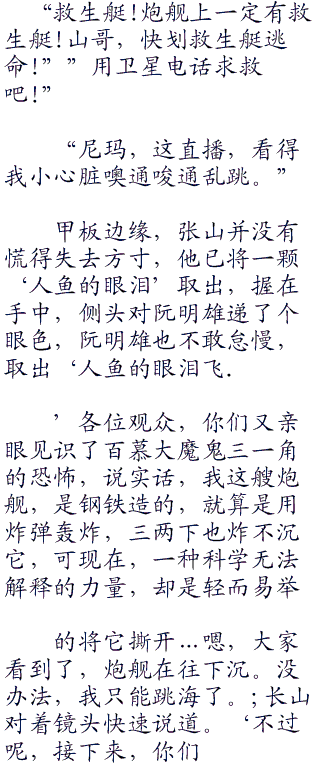 “救生艇!炮舰上一定有救
生艇!山哥，快划救生艇逃
命!””用卫星电话求救
吧!”
“尼玛，这直播，看得
我小心脏噢通唆通乱跳。”
甲板边缘，张山并没有
慌得失去方寸，他已将一颗
‘人鱼的眼泪’取出，握在
手中，侧头对阮明雄递了个
眼色，阮明雄也不敢怠慢，
取出‘人鱼的眼泪飞.
’各位观众，你们又亲
眼见识了百慕大魔鬼三一角
的恐怖，说实话，我这艘炮
舰，是钢铁造的，就算是用
炸弹轰炸，三两下也炸不沉
它，可现在，一种科学无法
解释的力量，却是轻而易举
的将它撕开…嗯，大家
看到了，炮舰在往下沉。没
办法，我只能跳海了。;长山
对着镜头快速说道。‘不过
呢，接下来，你们